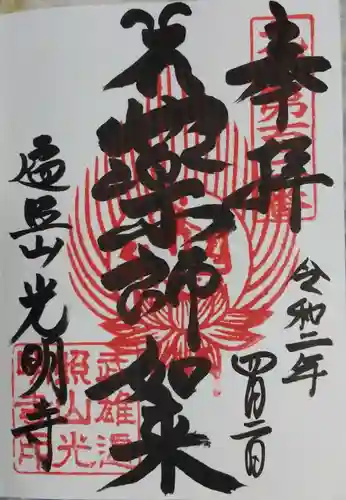 奉拝
薬師如来
令和二年
四月二日
遍照山光明寺
武雄遍
照山光
明寺印